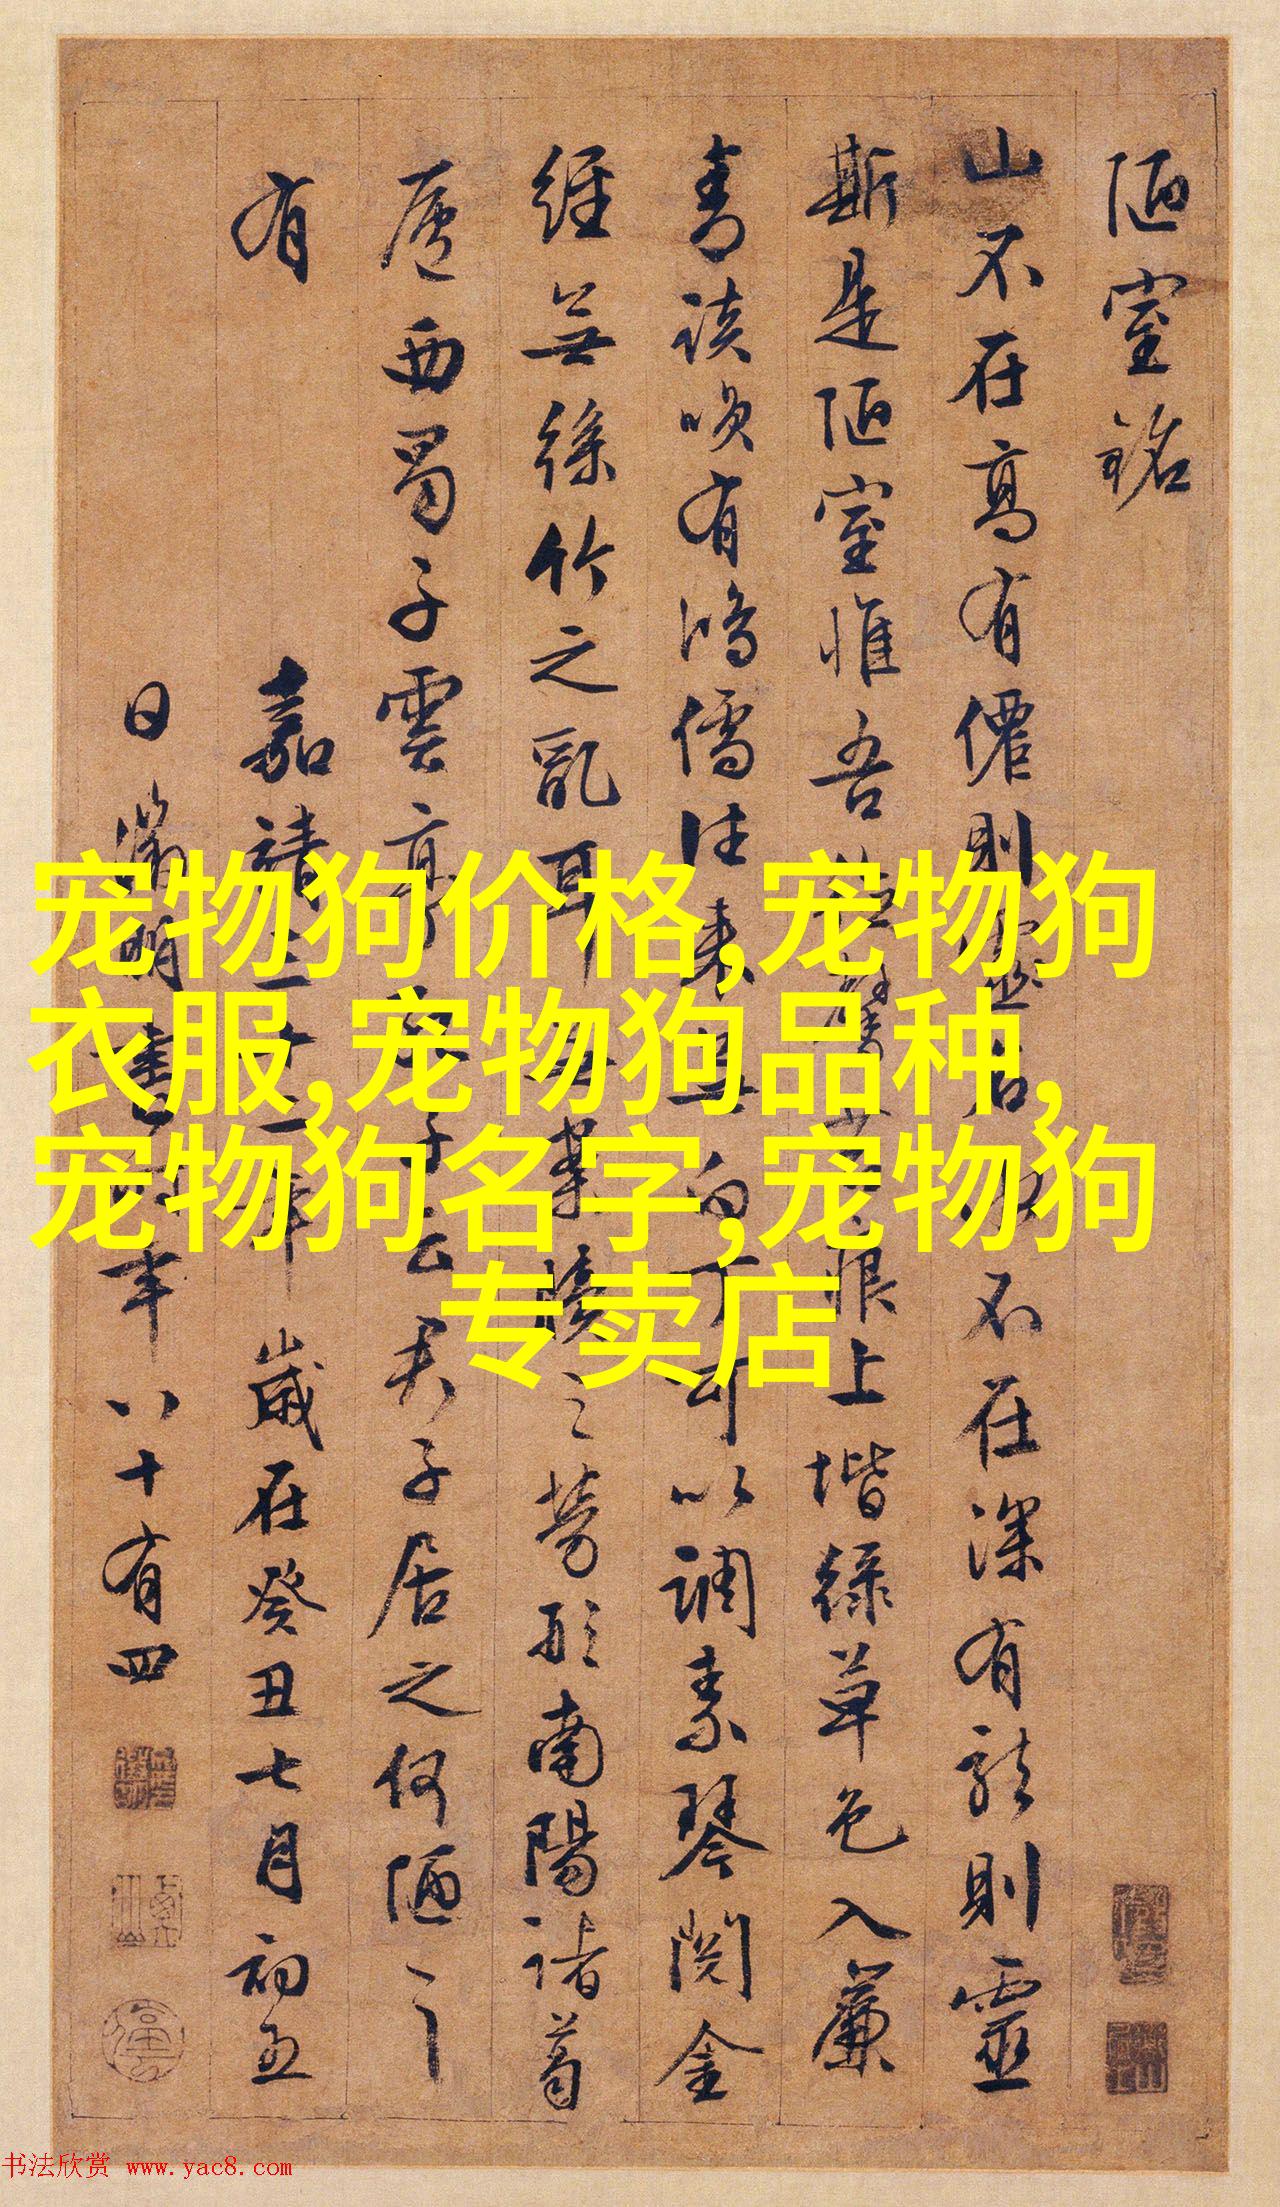 陋室銘
山不在高有僊則靈名水不在深有龍則靈
斯是陋室惟吾德馨苔痕上堦緑草色入簾
青談咲有鴻儒往来無白丁可以調素琴閱金
經無絲竹之亂耳無案牘之勞形南陽諸葛
廬西蜀子雲亭孔子云君子居之何陋之
有
嘉靖三十二年歲在癸丑七月初五
日徵明書時年八十有四
宠物狗价格,宠物狗
衣服,宠物狗品种,
宠物狗名字,宠物狗
专卖店
书法欣赏 www.yac8.com